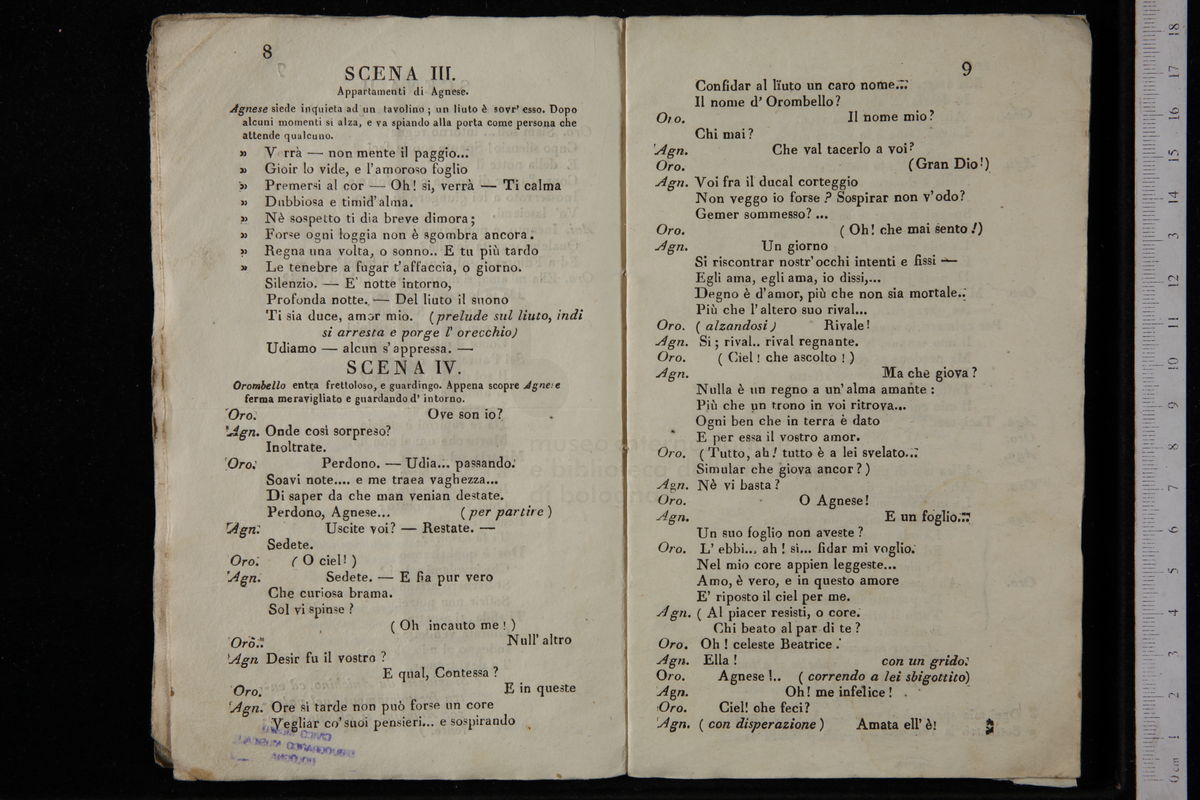 8
SCENA III.
Appartamenti di Agnese.
Agnese siede inquieta ad un tavolino; un liuto è sovr' esso. Dopo
alcuni momenti si alza, e va spiando alla porta come persona che
attende qualcuno.
» V rrà — non mente il paggio...
» Gioir lo vide, e l'amoroso foglio
» Premersi al cor — Oh! si, verrà — Ti calma
» Dubbiosa e timid'alma.
» Nè sospetto ti dia breve dimora;
» Forse ogni loggia non è sgombra ancora.
» Regna una volta, o sonno.. E tu più tardo
» Le tenebre a fugar t'affaccia, o giorno.
Silenzio. — E' notte intorno,
Profonda notte. — Del liuto il suono
Ti sia duce, amor mio. (prelude sul liuto, indi
si arresta e porge l' orecchio)
Udiamo — alcun s'appressa. —
SCENA IV.
Orombello entra frettoloso, e guardingo. Appena scopre Agnese e
ferma meravigliato e guardando d' intorno.
Oro. Ove son io?
Agn. Onde così sorpreso?
Inoltrate.
Oro. Perdono. — Udia... passando.
Soavi note.... e me traea vaghezza...
Di saper da che man venian destate.
Perdono, Agnese... (per partire)
Agn. Uscite voi? — Restate. —
Sedete.
Oro. (O ciel!)
Agn. Sedete. — E fia pur vero
Che curiosa brama.
Sol vi spinse?
(Oh incauto me!)
Oro.. Null' altro
Agn Desir fu il vostro?
E qual, Contessa?
Oro. E in queste
Agn. Ore si tarde non può forse un core
Vegliar co'suoi pensieri... e sospirando
9
Confidar al lïuto un caro nome...
Il nome d' Orombello?
Oro. Il nome mio?
Chi mai?
Agn. Che val tacerlo a voi?
Oro. (Gran Dio!)
Agn. Voi fra il ducal corteggio
Non veggo io forse? Sospirar non v'odo?
Gemer sommesso?...
Oro. (Oh! che mai sento!)
Agn. Un giorno
Si riscontrar nostr'occhi intenti e fissi —
Egli ama, egli ama, io dissi,...
Degno è d'amor, più che non sia mortale..
Più che l'altero suo rival...
Oro. (alzandosi) Rivale!
Agn. Si; rival.. rival regnante.
Oro. (Ciel! che ascolto!)
Agn. Ma che giova?
Nulla è un regno a un'alma amante:
Più che un trono in voi ritrova...
Ogni ben che in terra è dato
E per essa il vostro amor.
Oro. (Tutto, ah! tutto è a lei svelato...
Simular che giova ancor?)
Agn. Nè vi basta?
Oro. O Agnese!
Agn. E un foglio...
Un suo foglio non aveste?
Oro. L' ebbi... ah! sì... fidar mi voglio.
Nel mio core appien leggeste...
Amo, è vero, e in questo amore
E' riposto il ciel per me.
Agn. (Al piacer resisti, o core.
Chi beato al par di te?
Oro. Oh! celeste Beatrice.
Agn. Ella! con un grido.
Oro. Agnese!.. (correndo a lei sbigottito)
Agn. Oh! me infelice!
Oro. Ciel! che feci?
Agn. (con disperazione) Amata ell' è!